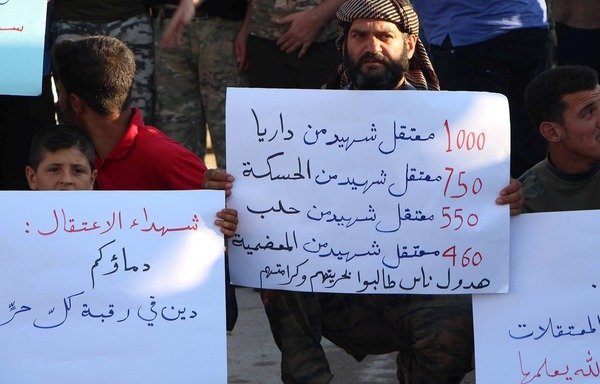 1000 معتقل شهيد من داريا
750 معتقل شهيد من الحسكة
550 معتقل شهيد من حلب
460 معتقل شهيد من المعضمية
هدول ناس طالبوا بحريتهم وكرامتهم
شهداء الاعتقال :
دماؤكم
دين في رقبة كلّ حرّ
المعتقلات
الله يعلمها